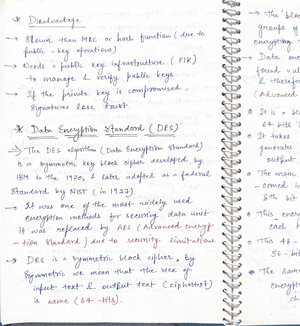 * Disadvantage
→ Slower than MAC or hash function (due to
public-key operations)
→ Needs a public key infrastructure (PIK)
to manage & verify public keys.
→ If the private key is compromised,
signatures lose trust.
* Data Encryption Standard (DES)
→ The DES algorithm (Data Encryption Standard)
is a symmetric key block cipher developed by
IBM in the 1970s & later adopted as a federal
standard by NBT (in 1977).
→ It was one of the most widely used
encryption methods for securing data until
it was replaced by AES (Advanced encryp-
-tion standard) due to security limitations
→ DES is a symmetric block cipher. By
symmetric we mean that the size of
input text & output text (ciphertext)
is same (64-bits).
→ The 'bloc
groups of
encryption
→ Data enc
found vul
& therefor
(Advanced
→ It is a bl
64 bits
→ It takes
generates
output
→ The main
-ormed i
8th bit
→ This
each
→ This 48-
56-bit
→ The same
encrypt